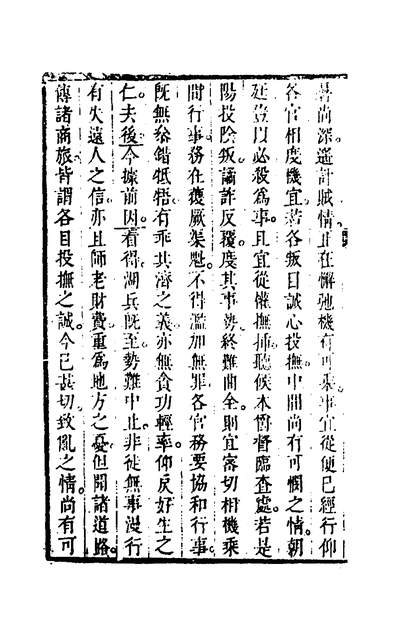 暑尚深遥計賊情正在懈弛機有可乘事宜從便已經行仰
各官相度機宜若各叛目誠心投撫中間尚有可憫之情朝
廷豈以必殺爲事且宜從權撫插聽候本爵督臨查處若是
陽投陰叛譎詐反覆度其事勢終難曲全則宜密切相機乘
間行事務在獲厥渠魁不得濫加無罪各官務要協和行事
既無參錯牴牾有乖共濟之義亦無貪功輕率仰反好生之
仁夫後今據前因看得湖兵既至勢難中止非徒無事漫行
有失遠人之信亦且師老財費重爲地方之憂但聞諸道路
傳諸商旅皆謂各目投撫之誠今已甚切致亂之情尚有可